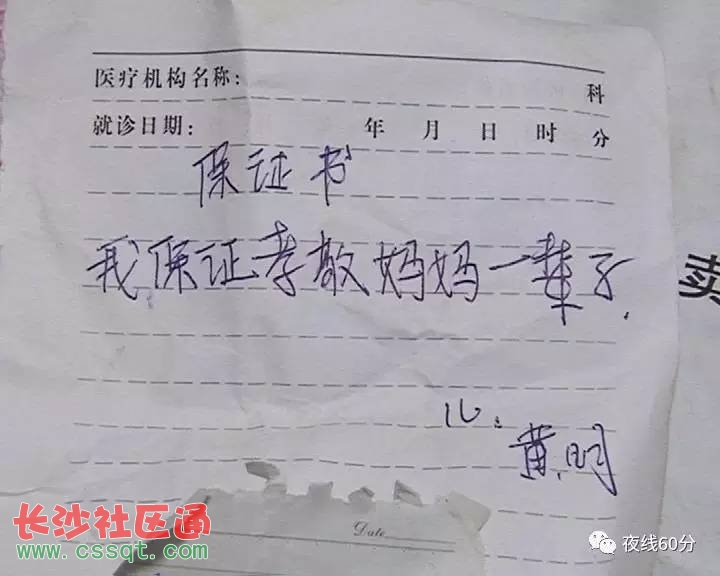 医疗机构名称： 科
就诊日期： 年 月 日 时 分
保证书
我保证孝敬妈妈一辈子.
卖
儿：
黄明
Date
长沙社区通
www.cssqt.com
夜线60分